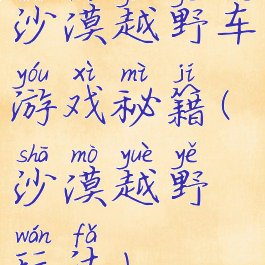 沙漠越野车
yóu xì mì jí
游戏秘籍(
shā mò yuè yě
沙漠越野
wán fǎ